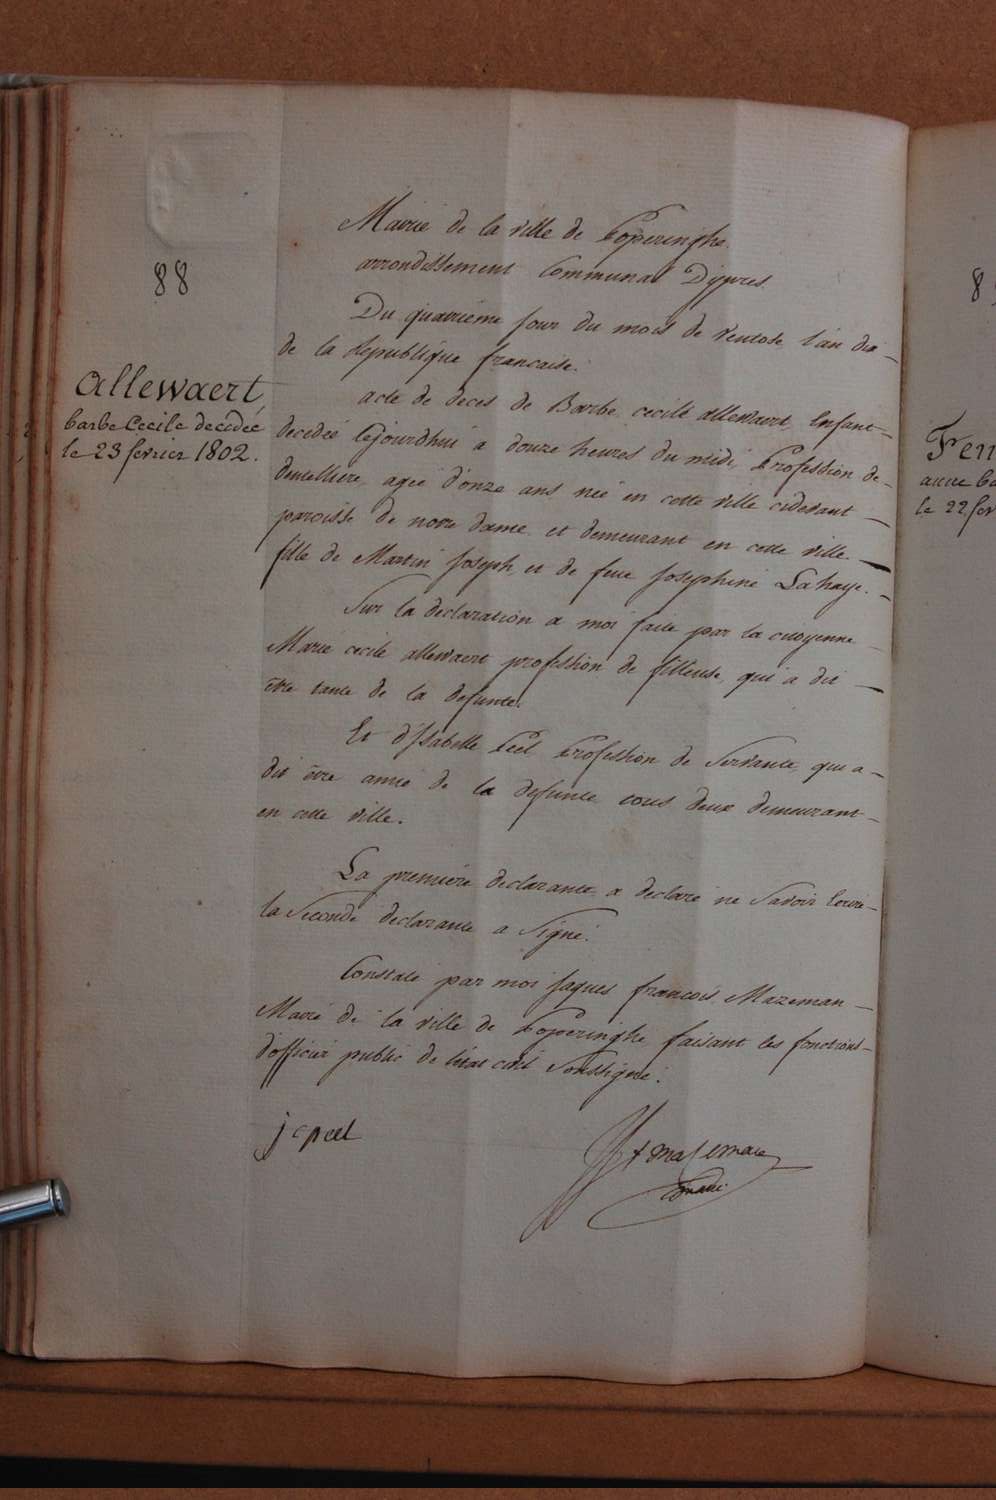 88
Allewaert
barbe Cecile decédée
le 23 fevrier 1802.
Mairie de la ville de Poperinghe.
arrondissement Communal D'ypres.
Du quatrième jour du mois de ventose l'an dix —
de la Republique francaise.
acte de deces de Barbe cecile allewaert, Enfant —
decedée cejourdhui a douze heures du midi, Profession de —
dentelliere, agée d'onze ans née en cette ville cidevant —
paroisse de notre dame et demeurant en cette ville. —
fille de Martin Joseph, et de feue Josephine Lahaye. —
Sur la declaration a moi faite par la citoyenne —
Marie cecile allewaert profession de filleuse, qui a dit —
être tante de la defunte.
Et d'Isabelle Peel Profession de Servante, qui a —
dit être amie de la defunte tous deux demeurant —
en cette ville.
La premiere declarante a declaré ne Savoir Ecrire —
la Seconde declarante a Signé.
Constaté par moi Jaques francois Mazeman —
Maire de la ville de Poperinghe faisant les fonctions —
d'officier public de l'état civil Soussigné.
j c peel
maire
8
Fen
anne
le 22 fev